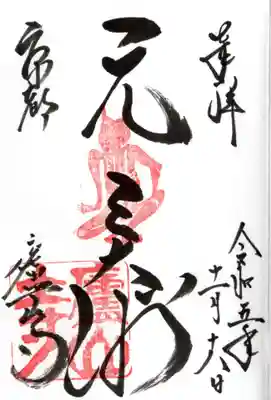 奉拝
令和五年
十一月十八日
元三大師
京都
廬山寺